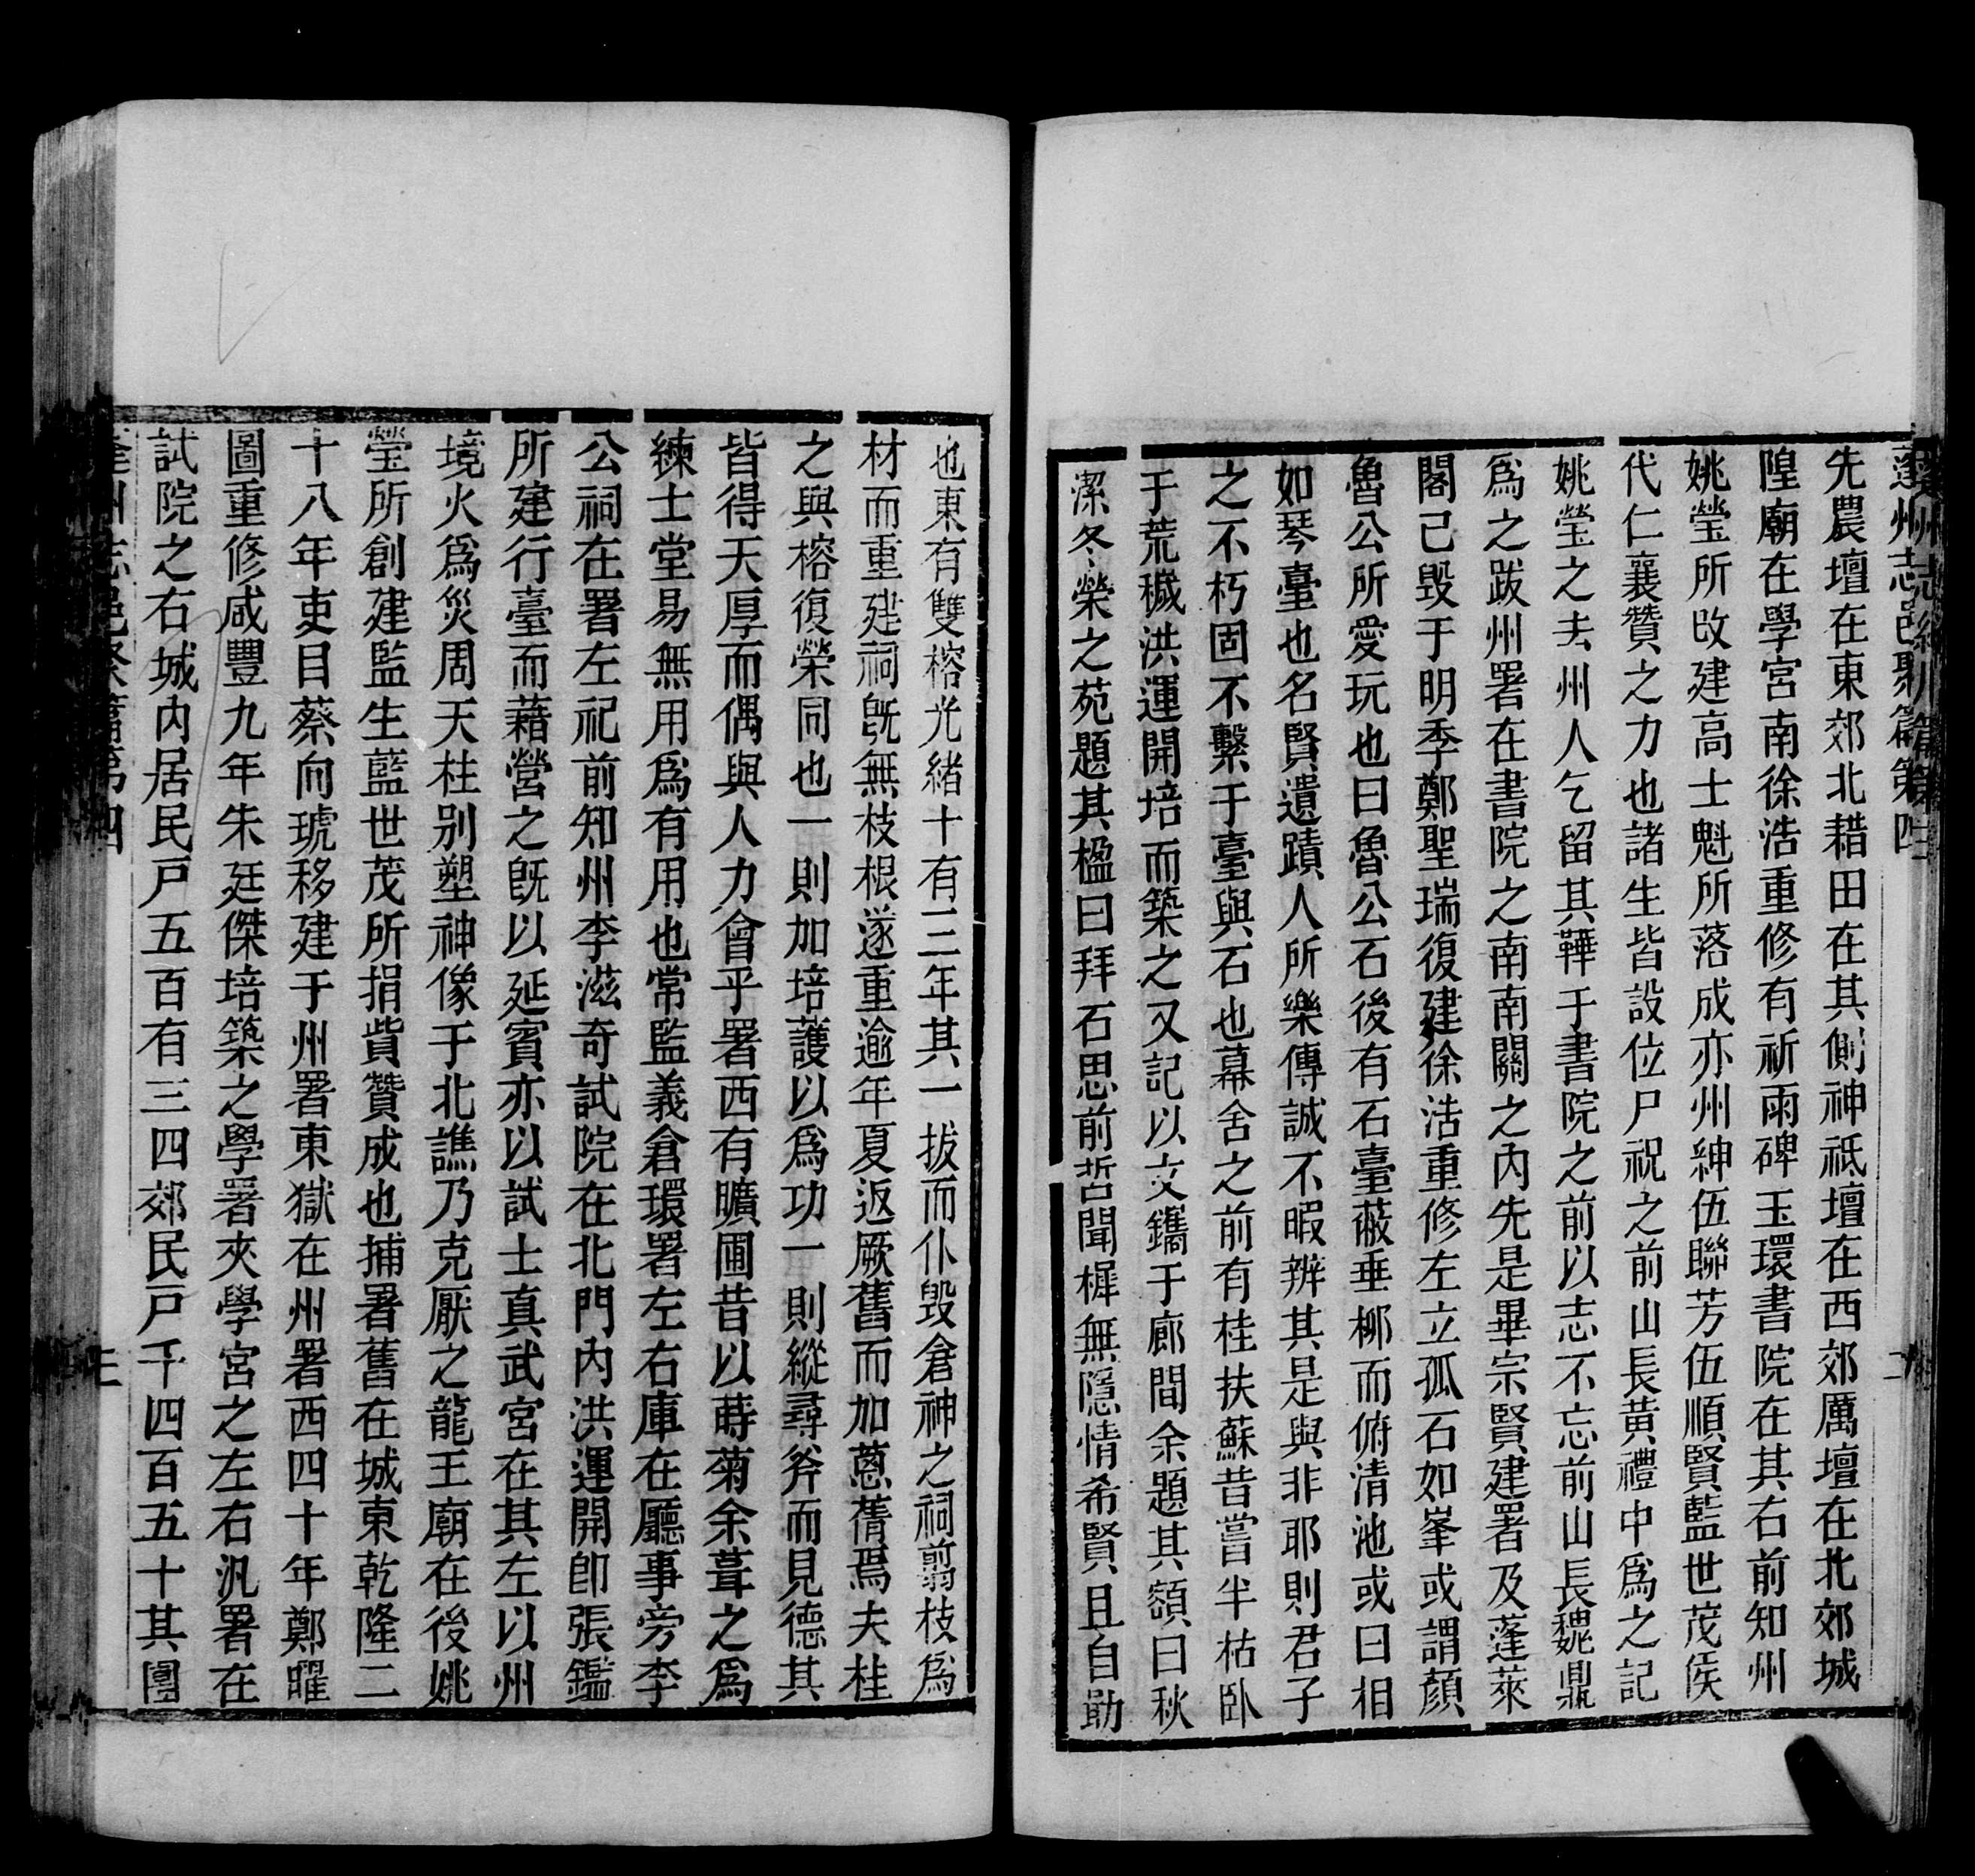 蓬州志邑聚篇第四
先農壇在東郊北耤田在其側神祗壇在西郊厲壇在北郊城
隍廟在學宮南徐浩重修有祈雨碑玉環書院在其右前知州
姚瑩所改建高士魁所落成亦州紳伍聯芳伍順賢藍世茂侯
代仁襄贊之力也諸生皆設位尸祝之前山長黃禮中爲之記
姚瑩之去州人乞留其鞾于書院之前以志不忘前山長魏鼎
爲之跋州署在書院之南南關之內先是畢宗賢建署及蓬萊
閣已毀于明季鄭聖瑞復建徐浩重修左立孤石如峯或謂顏
魯公所愛玩也曰魯公石後有石臺蔽垂柳而俯清池或曰相
如琴臺也名賢遺蹟人所樂傳誠不暇辨其是與非耶則君子
之不朽固不繫于臺與石也幕舍之前有桂扶蘇昔嘗半枯臥
于荒穢洪運開培而築之又記以文鐫于廊間余題其額曰秋
潔冬榮之苑題其楹曰拜石思前哲聞樨無隱情希賢且自勖
也東有雙榕光緒十有三年其一拔而仆毀倉神之祠翦枝爲
材而重建祠旣無枝根遂重逾年夏返厥舊而加蔥蒨焉夫桂
之與榕復榮同也一則加培護以爲功一則縱尋斧而見德其
皆得天厚而偶與人力會乎署西有曠圃昔以蒔菊余葺之爲
練士堂易無用爲有用也常監義倉環署左右庫在廳事旁李
公祠在署左祀前知州李滋奇試院在北門內洪運開卽張鑑
所建行臺而藉營之旣以延賓亦以試士真武宮在其左以州
境火爲災周天柱別塑神像于北譙乃克厭之龍王廟在後姚
瑩所創建監生藍世茂所捐貲贊成也捕署舊在城東乾隆二
十八年吏目蔡向琥移建于州署東獄在州署西四十年鄭曜
圖重修咸豐九年朱廷傑培築之學署夾學宮之左右汛署在
試院之右城內居民戸五百有三四郊民戸千四百五十其團
蓬州志邑聚篇第四 三